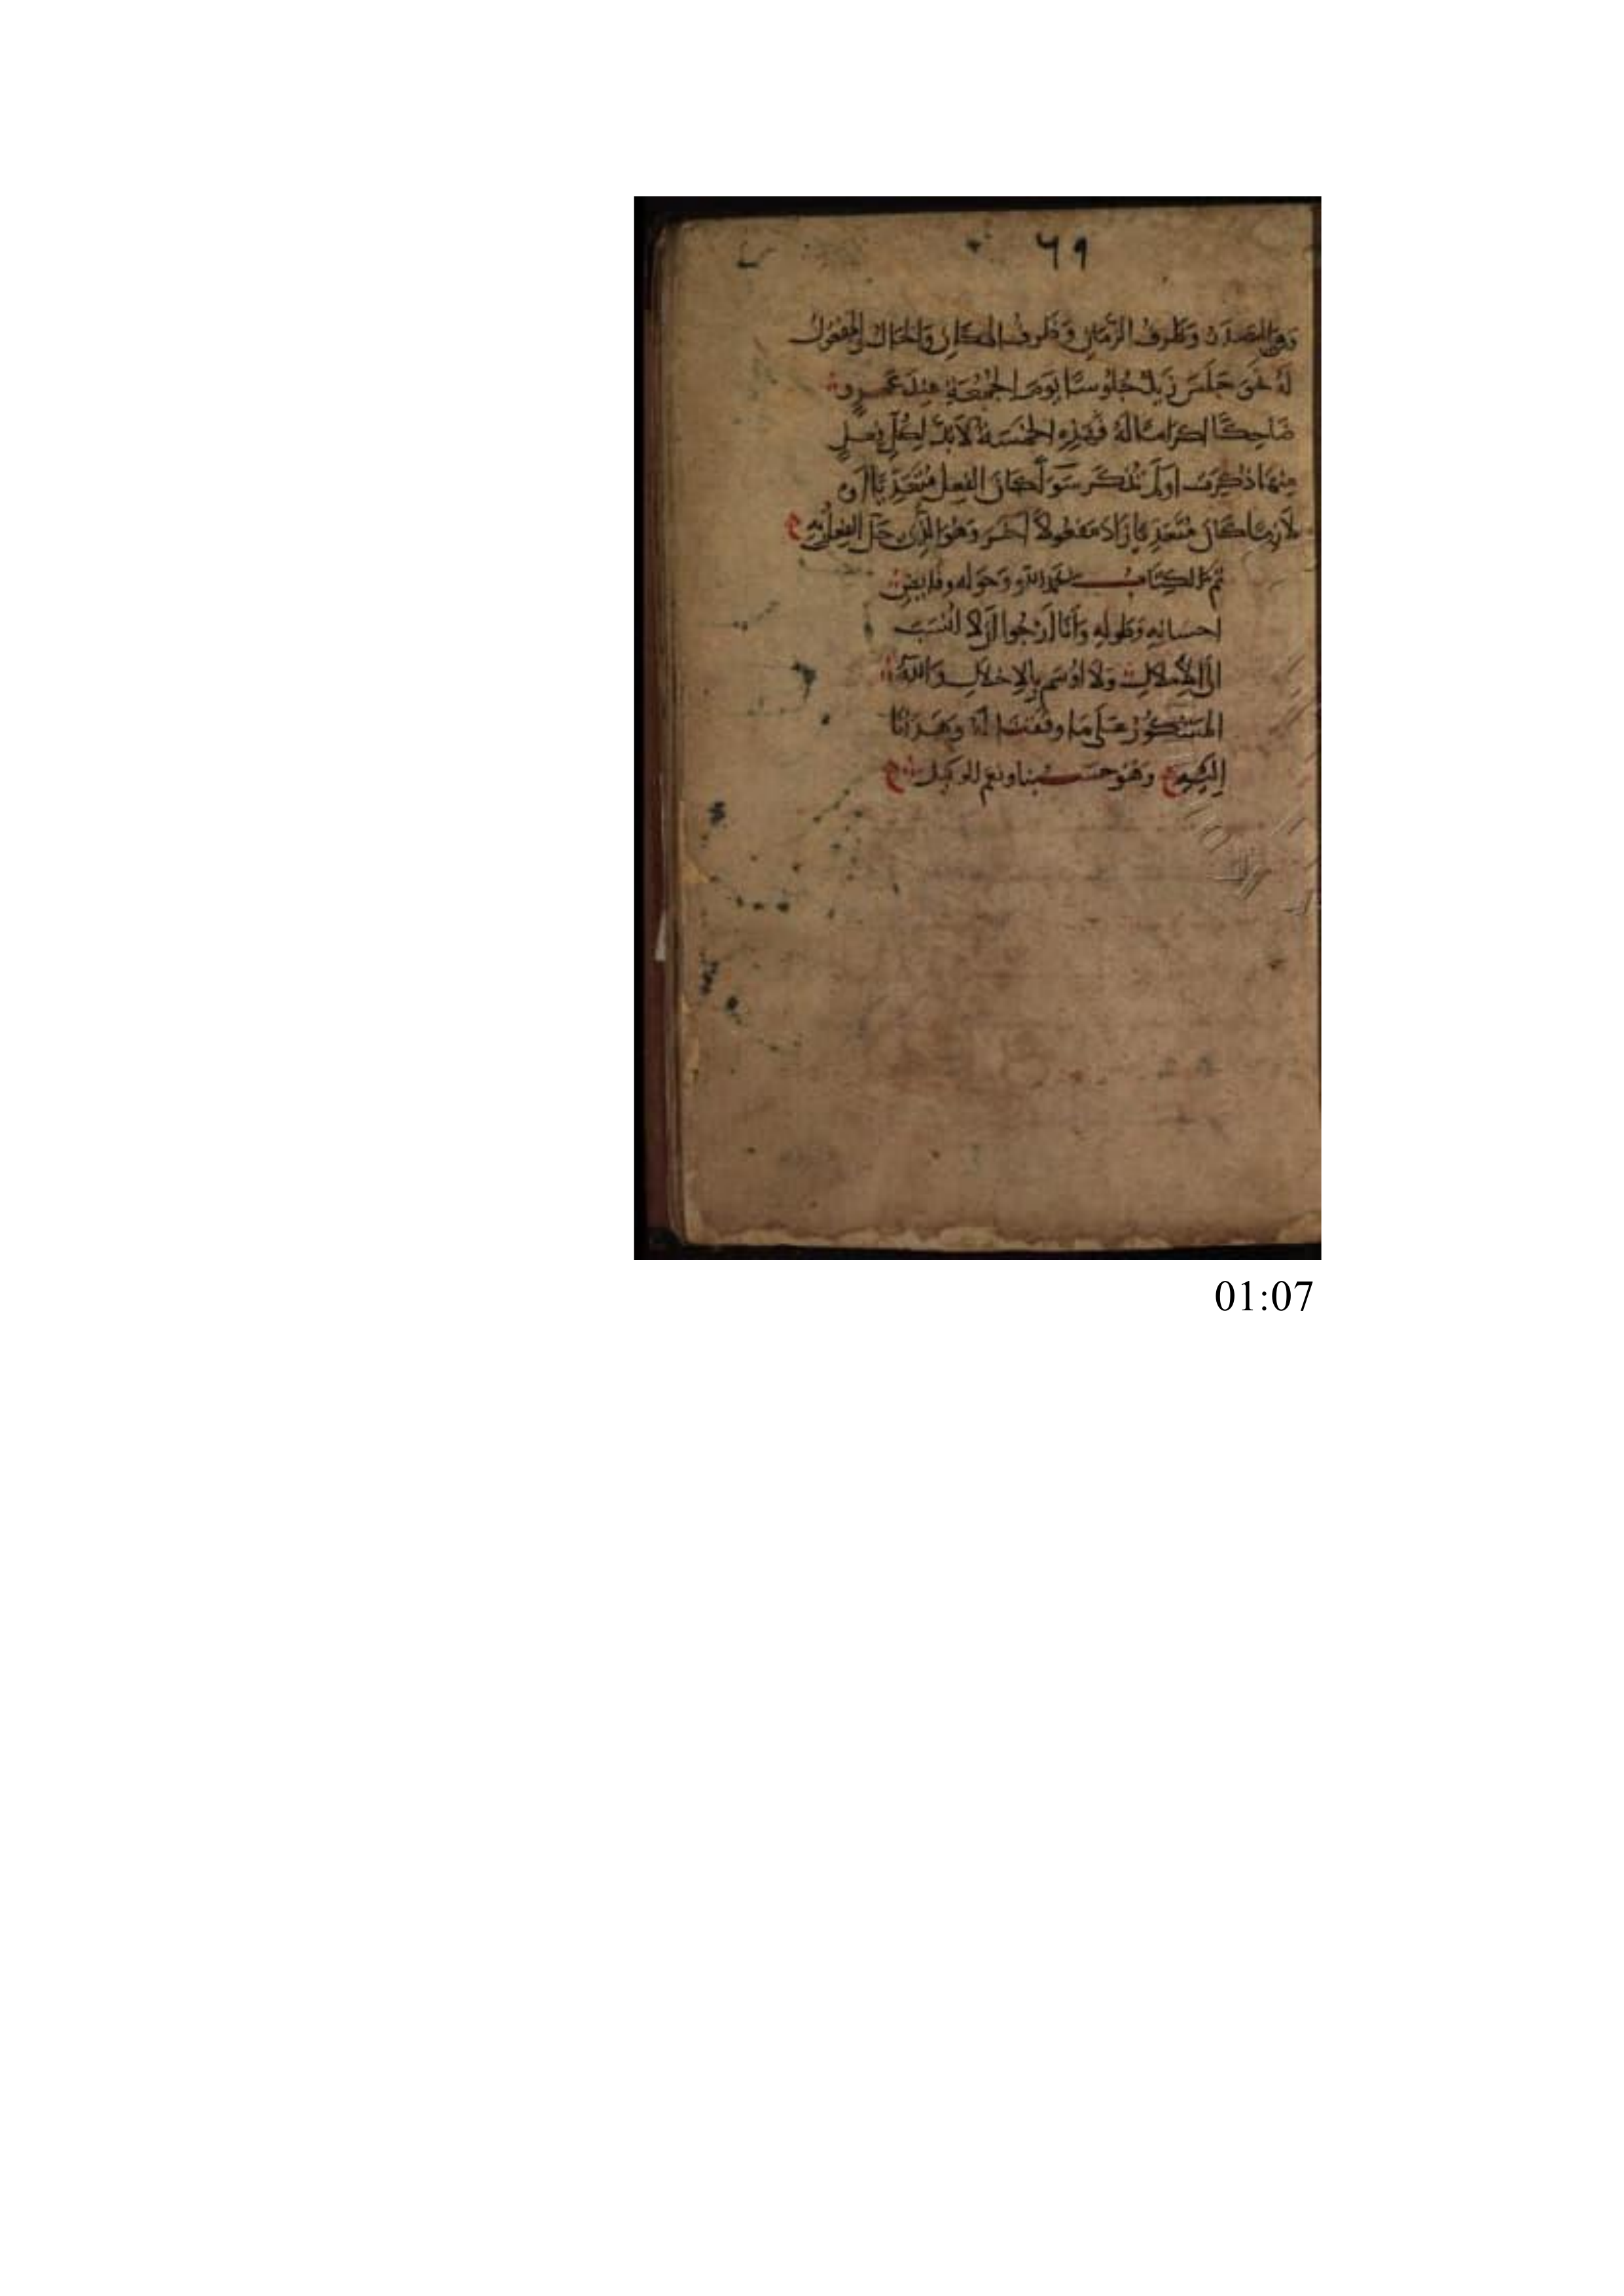 ٦٩
وهي المصدر وظرف الزمان وظرف المكان والحال والمفعول
له نحو جلس زيد جلوسا يوم الجمعة عند عمرو
ضاحكا اكراما له فهذه الخمسة لابد لكل فعل
منها ذكرت اولم تذكر سوآ كان الفعل متعديا او
لازما كان متعديا زاد مفعولا آخر وهو الذي حل الفعل به
تم الكتاب بحمد الله وحوله وفايض
احسانه وطوله وأنا أرجوا أن لا انسب
الى الاملال ولا اوسم بالاخلال والله
المشكور على ما وفقنا له وهدانا
إليه وهو حسبنا ونعم الوكيل
01:07